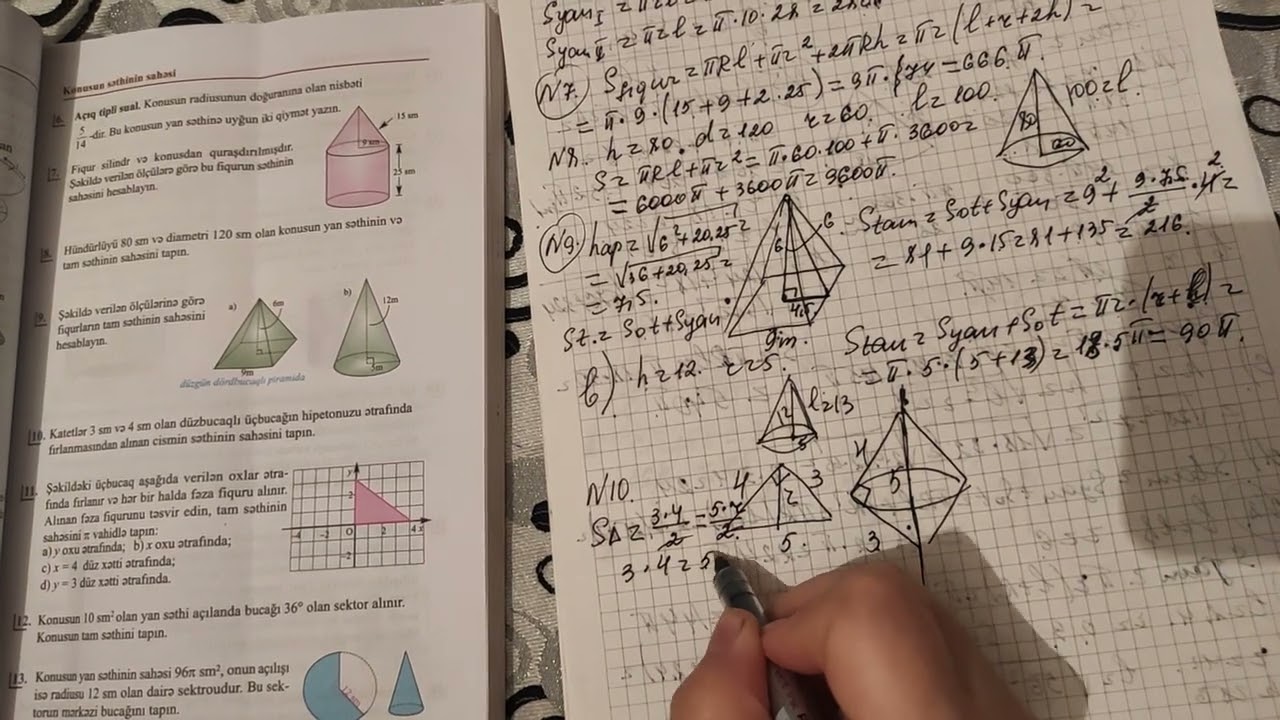 Konusun səthinin sahəsi
6. Açıq tipli sual. Konusun radiusunun doğuranına olan nisbəti
5/14 -dir. Bu konusun yan səthinə uyğun iki qiymət yazın.
7. Fiqur silindr və konusdan quraşdırılmışdır.
Şəkildə verilən ölçülərə görə bu fiqurun səthinin
sahəsini hesablayın.
15 sm
9 sm
25 sm
8. Hündürlüyü 80 sm və diametri 120 sm olan konusun yan səthinin və
tam səthinin sahəsini tapın.
9. Şəkildə verilən ölçülərinə görə
fiqurların tam səthinin sahəsini
hesablayın.
a)
6m
9m
düzgün dördbucaqlı piramida
b)
12m
5m
10. Katetlər 3 sm və 4 sm olan düzbucaqlı üçbucağın hipetonuzu ətrafında
fırlanmasından alınan cismin səthinin sahəsini tapın.
11. Şəkildəki üçbucaq aşağıda verilən oxlar ətra-
fında fırlanır və hər bir halda fəza fiquru alınır.
Alınan fəza fiqurunu təsvir edin, tam səthinin
sahəsini π vahidlə tapın:
a) y oxu ətrafında; b) x oxu ətrafında;
c) x = 4 düz xətti ətrafında;
d) y = 3 düz xətti ətrafında.
y
2
-4 -2 O 2 4 x
-2
12. Konusun 10 sm² olan yan səthi açılanda bucağı 36° olan sektor alınır.
Konusun tam səthini tapın.
13. Konusun yan səthinin sahəsi 96π sm², onun açılışı
isə radiusu 12 sm olan dairə sektroudur. Bu sek-
torun mərkəzi bucağını tapın.
12 sm
Syan I =
Syan II = πrl = π·10·28 = 
N7. Sfiqur = πRl + πr² + 2πRh = πr(l+r+2h) =
= π·9·(15+9+2·25) = 9π·74 = 666π.
N8. h=80. d=120 r=60. l=100.
S = πRl + πr² = π·60·100 + π·3600 =
= 6000π + 3600π = 9600π.
80
100=l.
N9. hap = √6²+20,25 =
= √36+20,25 =
= 7,5.
St. = Sot + Syan
6
6.
4,5
9m.
Stam = Sot + Syan = 9² + 9·7,5/2 ·4 =
= 81+9·15=81+135=216.
b) h=12. r=5.
12
l=13
5
Stam = Syan + Sot = πr·(r+l) =
= π·5·(5+13) = 18·5π = 90π.
N10.
S∆ = 3·4/2 = 5·r/2.
3·4 = 5
4
3
r
5.
4
5
3